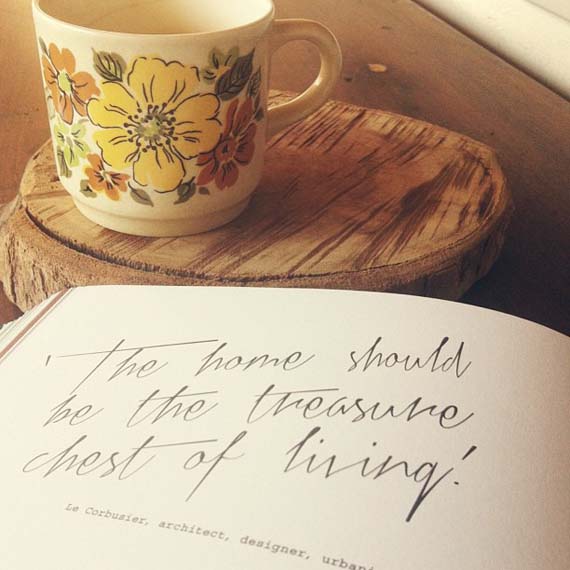 'The home should
be the treasure
chest of living!'
Le Corbusier, architect, designer,